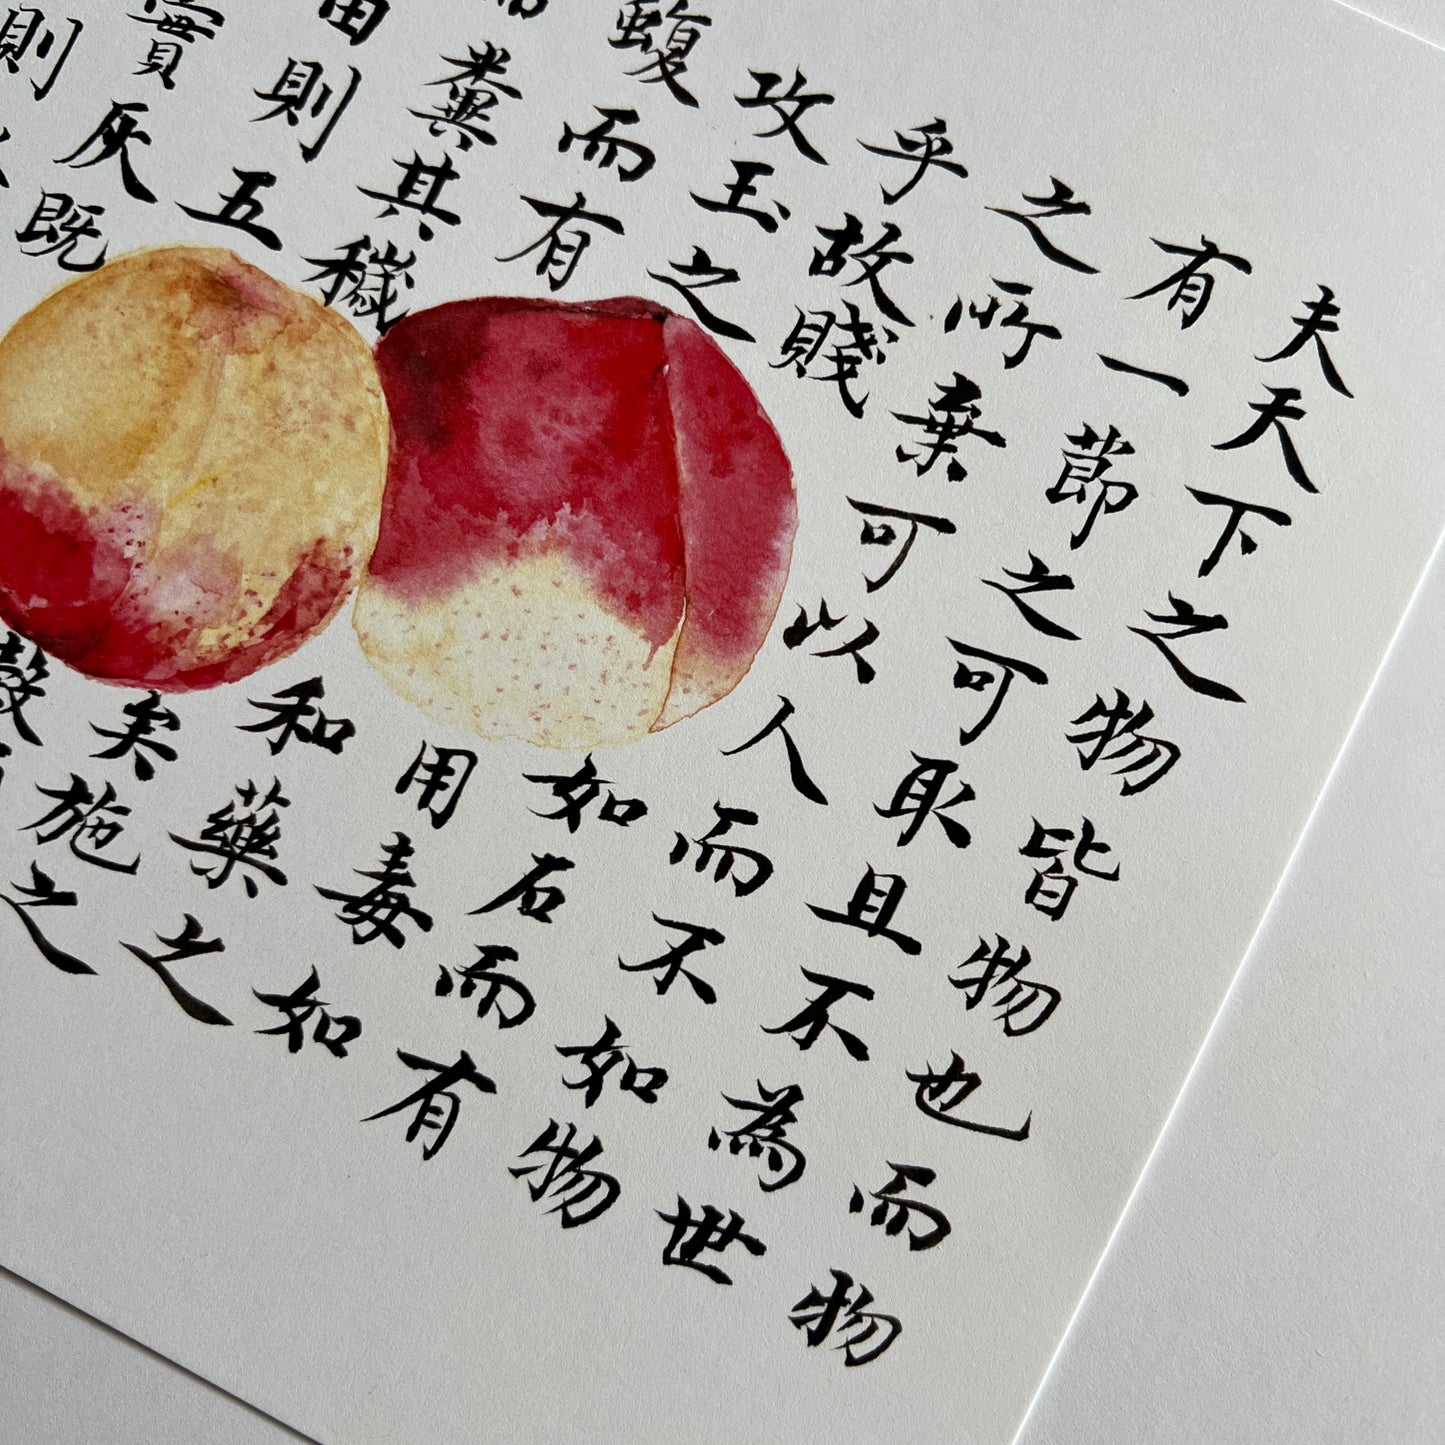 夫天下之物皆物也而物
有一節之可取且不為世
之所棄可以人而不如物
乎故賤如石而有
攻玉之用毒如
蝮而有和藥之
糞其穢矣施之
田則五穀
實灰既
則